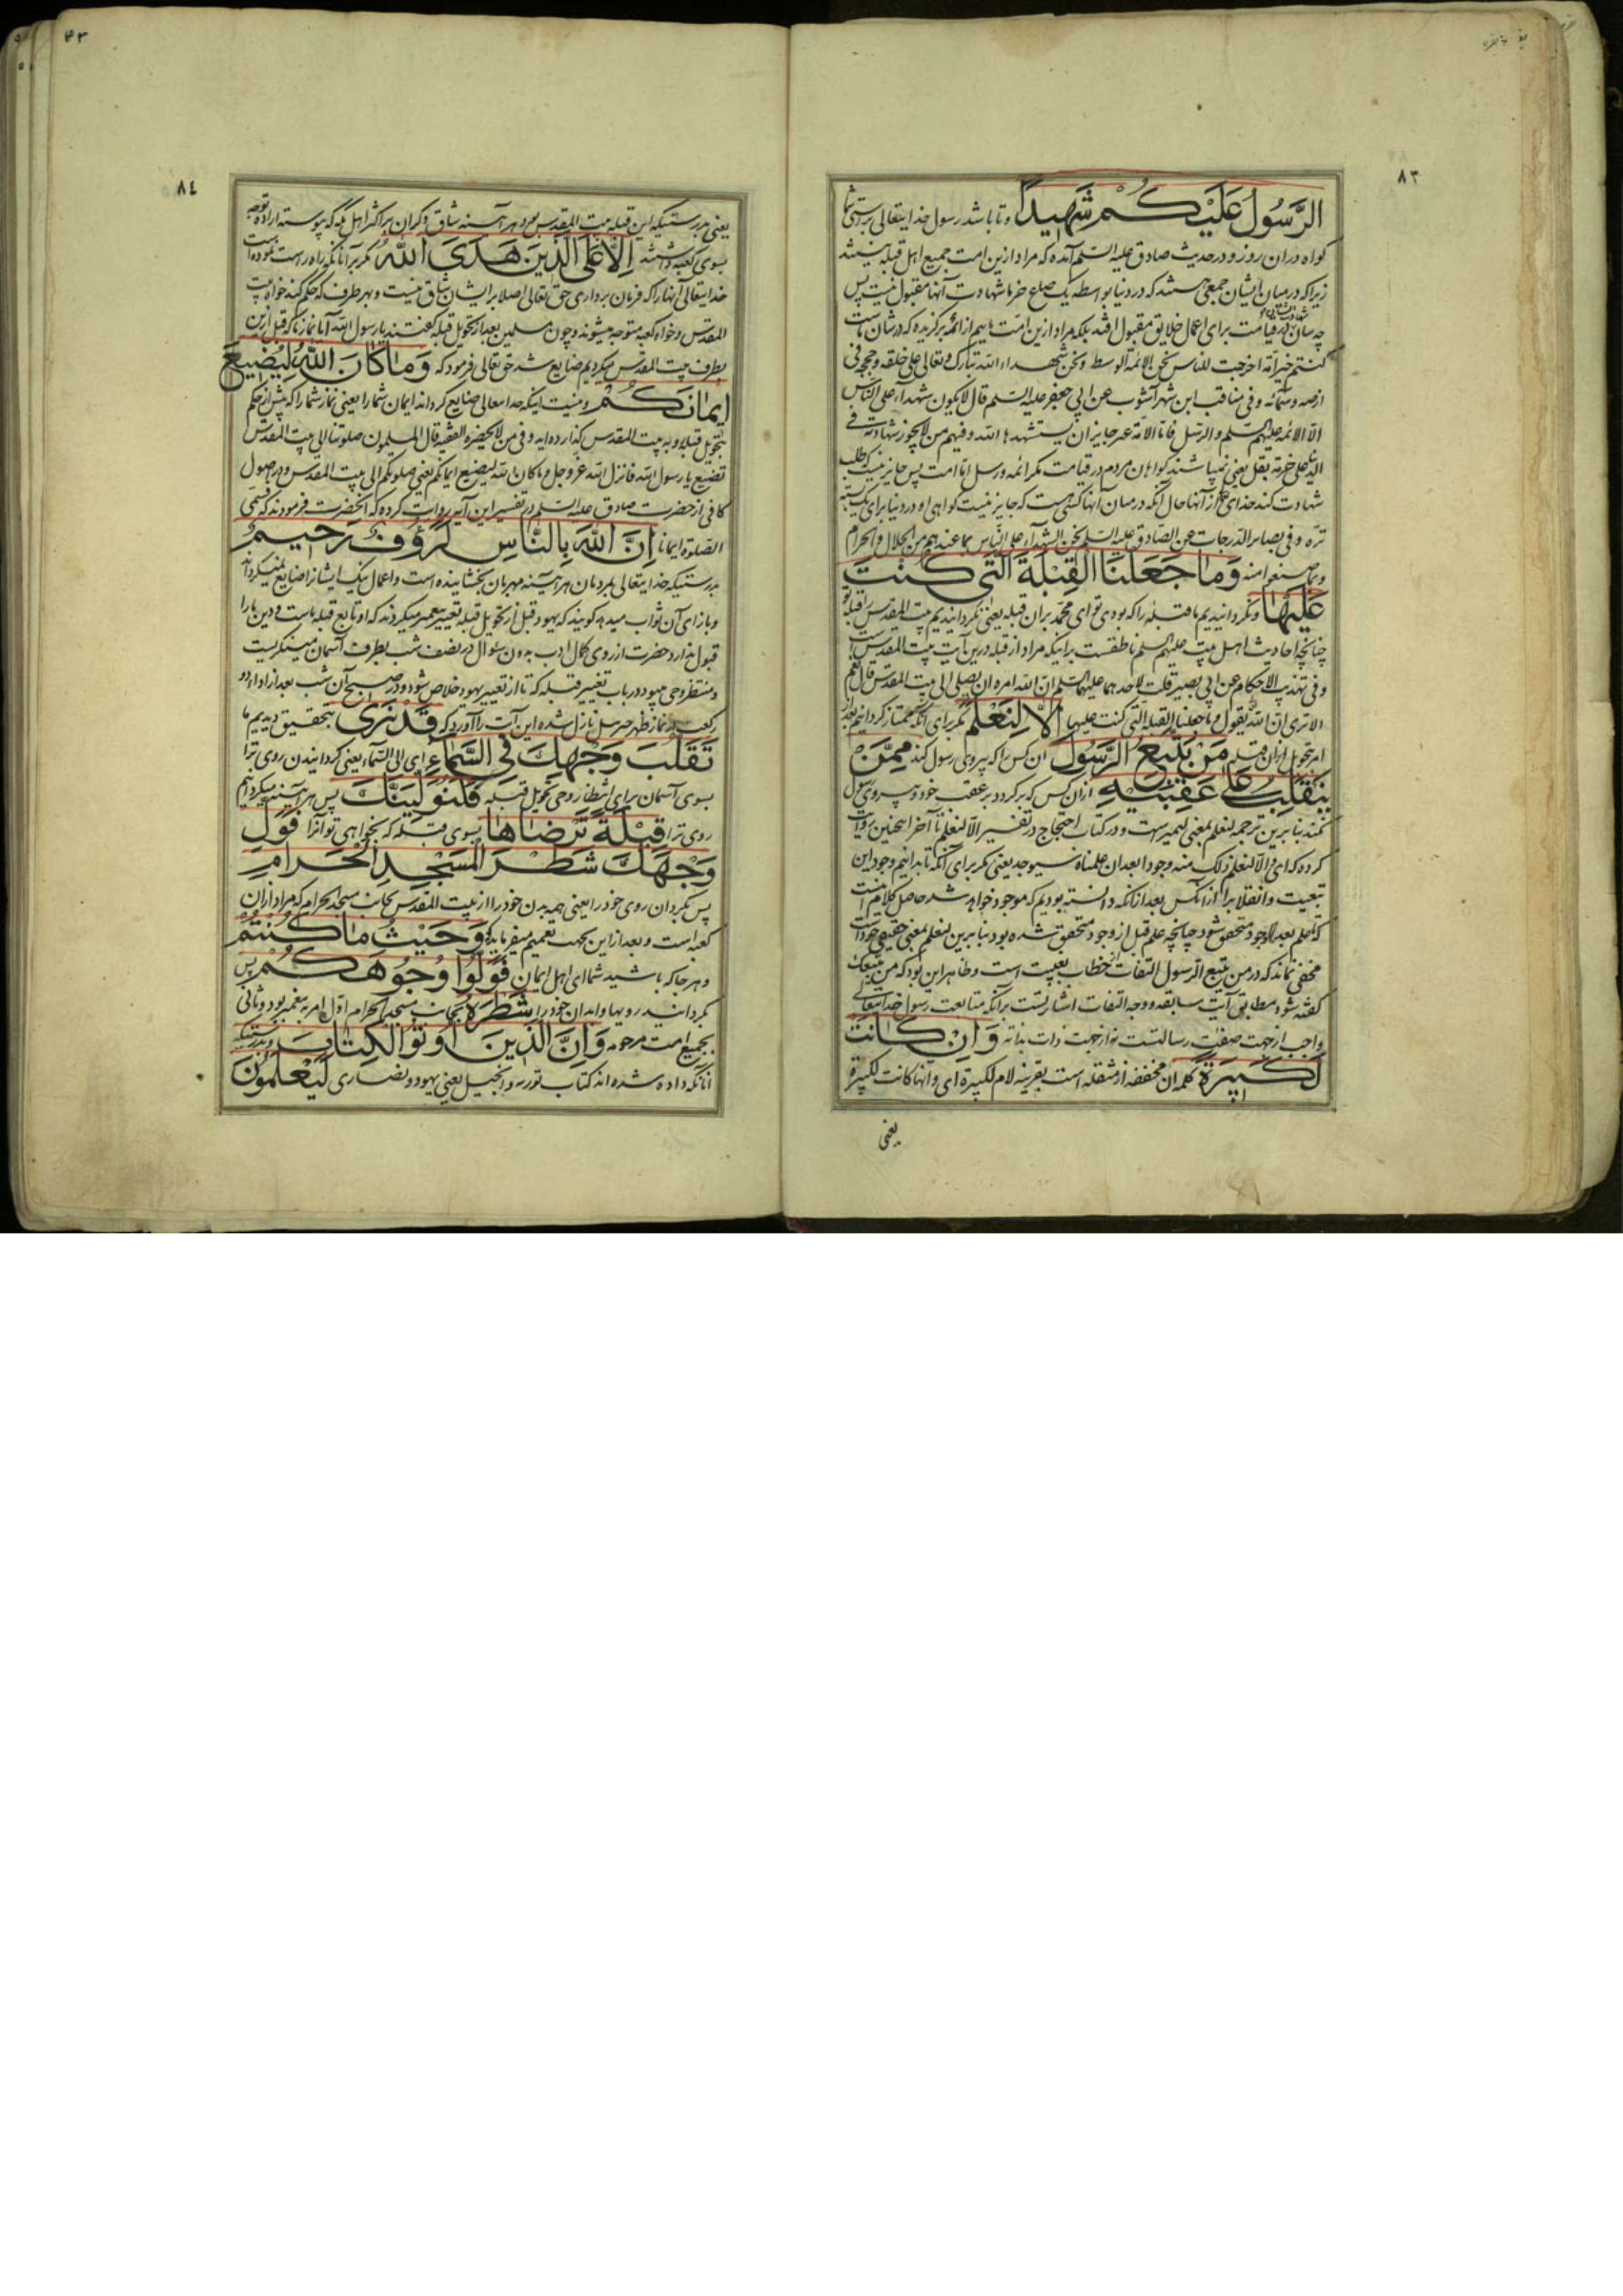 ٨٣
الرَّسُولُ عَلَيْكُمْ شَهِيدًا و تا باشد رسول خدایتعالی بر راستی شما
کواه دران روز و در حدیث صادق علیه السلم آمده که مراد ازین امت جمیع اهل قبله نیستند
زیرا که در میان ایشان جمعی هستند که در دنیا بواسطه یک صاع خرما شهادت آنها مقبول نیست پس
چه سان در قیامت برای اعمال خلایق مقبول افتد بلکه مراد ازین امت مائیم از ائمه برکزیده که در شان ماست
کنتم خیر ائمة اخرجت للناس نحن الائمة الوسط و نحن شهداء الله تبارک و تعالی علی خلقه و حججه فی
ارضه و سمائه و فی مناقب ابن شهر آشوب عن ابی جعفر علیه السلم قال لا یکون شهداء علی الناس
الا الائمه علیهم السلم و الرسل فاما الامة غیر جایز ان یستشهدها الله و فیهم من لا یجوز شهادته فی
الدنیا علی حزمة بقل یعنی نمیباشند کواهان مردم در قیامت مکر ائمه و رسل اما امت پس جایز نیست که طلب
شهادت کند خدای از آنها حال آنکه در میان آنها کسی هست که جایز نیست کواهی او در دنیا برای یک بسته
تره و فی بصایر الدرجات عن الصادق علیه السلم نحن الشهداء علی الناس بما عندهم من الحلال و الحرام
و بما ضیعوا منه وَمَا جَعَلْنَا الْقِبْلَةَ الَّتِي كُنْتَ
عَلَيْهَا و نکردانیدیم ما قبله را که بودی تو ای محمد بران قبله یعنی نکردانیدیم بیت المقدس را قبله تو
چنانچه احادیث اهل بیت علیهم السلم ناطقست برانیکه مراد از قبله درین آیت بیت المقدس است
و فی تهذیب الاحکام عن ابی بصیر قلت لاحدهما علیهما السلم ان الله امره ان یصلی الی بیت المقدس قال نعم
الا تری ان الله یقول و ما جعلنا القبلة التی کنت علیها إِلَّا لِنَعْلَمَ مکر برای آنکه ممتاز کردانیم بعد از
امر تحویل ازان قبله مَنْ يَتَّبِعُ الرَّسُولَ آن کس را که پیروی رسول کند مِمَّنْ
يَنْقَلِبُ عَلَى عَقِبَيْهِ ازان کس که برکردد بر عقب خود و پیروی رسول
نکند بنا برین ترجمه لنعلم بمعنی لنمیز است و در کتاب احتجاج در تفسیر الا لنعلم تا آخر اینچنین روایت
کرده که ای الا لنعلم ذلک منه وجودا بعد ان علمناه سیوجد یعنی مکر برای آنکه تا بدانیم وجود این
تبعیت و انقلاب را از آنکس بعد از آنکه دانسته بودیم که موجود خواهد شد حاصل کلام آنست
که علم بعد الوجود متحقق شود چنانچه علم قبل از وجود متحقق شده بود بنا برین لنعلم بمعنی حقیقی خود است
مخفی نماند که در من یتبع الرسول التفات از خطاب بغیبت است و ظاهر این بود که من یتبعک
کفته شود مطابق آیت سابقه و وجه التفات اشارتست برآنکه متابعت رسول خدایتعالی
واجب از جهت صفت رسالتست نه از جهت ذات بذاته وَإِنْ كَانَتْ
لَكَبِيرَةً کلمه ان مخففه از مثقله است بقرینه لام لکبیرة ای و انها کانت لکبیرة
یعنی
٨٤
یعنی بدرستیکه این قبله بیت المقدس بود هر آینه شاق و کران بر اکثر اهل مکه که پیوسته اراده توجه
بسوی کعبه داشتند إِلَّا عَلَى الَّذِينَ هَدَى اللَّهُ مکر بر آنانکه راه راست نموده است
خدایتعالی آنها را که فرمان برداری حق تعالی اصلا بر ایشان شاق نیست و بهر طرف که حکم کند خواه بیت
المقدس و خواه کعبه متوجه میشوند و چون مسلمین بعد از تحویل قبله کفتند یا رسول الله آیا نماز ما که قبل ازین
بطرف بیت المقدس میکردیم ضایع شد حق تعالی فرمود که وَمَا كَانَ اللَّهُ لِيُضِيعَ
إِيمَانَكُمْ و نیست اینکه خدایتعالی ضایع کرداند ایمان شما را یعنی نماز شما را که پیش از حکم
بتحویل قبله رو به بیت المقدس کذارده اید و فی من لا یحضره الفقیه قال المسلمون صلوتنا الی بیت المقدس
تضیع یا رسول الله فانزل الله عز و جل و ما کان الله لیضیع ایمانکم یعنی صلوتکم الی بیت المقدس و در اصول
کافی از حضرت صادق علیه السلم در تفسیر این آیه روایت کرده که آنحضرت فرمودند که فسمی
الصلوة ایمانا إِنَّ اللَّهَ بِالنَّاسِ لَرَؤُوفٌ رَحِيمٌ
بدرستیکه خدایتعالی بمردمان هر آینه مهربان بخشاینده است و اعمال نیک ایشانرا ضایع نمیکرداند
و بازای آن ثواب میدهد کویند که یهود قبل از تحویل قبله تعییر پیغمبر میکردند که او تابع قبله ماست و دین ما را
قبول ندارد حضرت از روی کمال ادب بدون سئوال در نصف شب بطرف آسمان مینکریست
و منتظر وحی میبود در باب تغییر قبله که تا از تعییر یهود خلاص شود و در صبح آن شب بعد از اداء دو
رکعت در نماز ظهر جبرئیل نازل شده این آیت را آورد که قَدْ نَرَى بتحقیق دیدیم ما
تَقَلُّبَ وَجْهِكَ فِي السَّمَاءِ ای الی السماء یعنی کردانیدن روی ترا
بسوی آسمان برای انتظار وحی تحویل قبله فَلَنُوَلِّيَنَّكَ پس هر آینه میکردانیم
روی ترا قِبْلَةً تَرْضَاهَا بسوی قبله که بخواهی تو آنرا فَوَلِّ
وَجْهَكَ شَطْرَ الْمَسْجِدِ الْحَرَامِ
پس بکردان روی خود را یعنی همه بدن خود را از بیت المقدس بجانب مسجد الحرام که مراد ازان
کعبه است و بعد از این بجهت تعمیم میفرماید که وَحَيْثُ مَا كُنْتُمْ
و هر جا که باشید شما ای اهل ایمان فَوَلُّوا وُجُوهَكُمْ پس
بکردانید رویها و ابدان خود را شَطْرَهُ بجانب مسجد الحرام اول امر به پیغمبر بود و ثانی
بجمیع امت مرحومه وَإِنَّ الَّذِينَ أُوتُوا الْكِتَابَ و بدرستیکه
آنانکه داده شده اند کتاب توریة و انجیل یعنی یهود و نصاری لَيَعْلَمُونَ